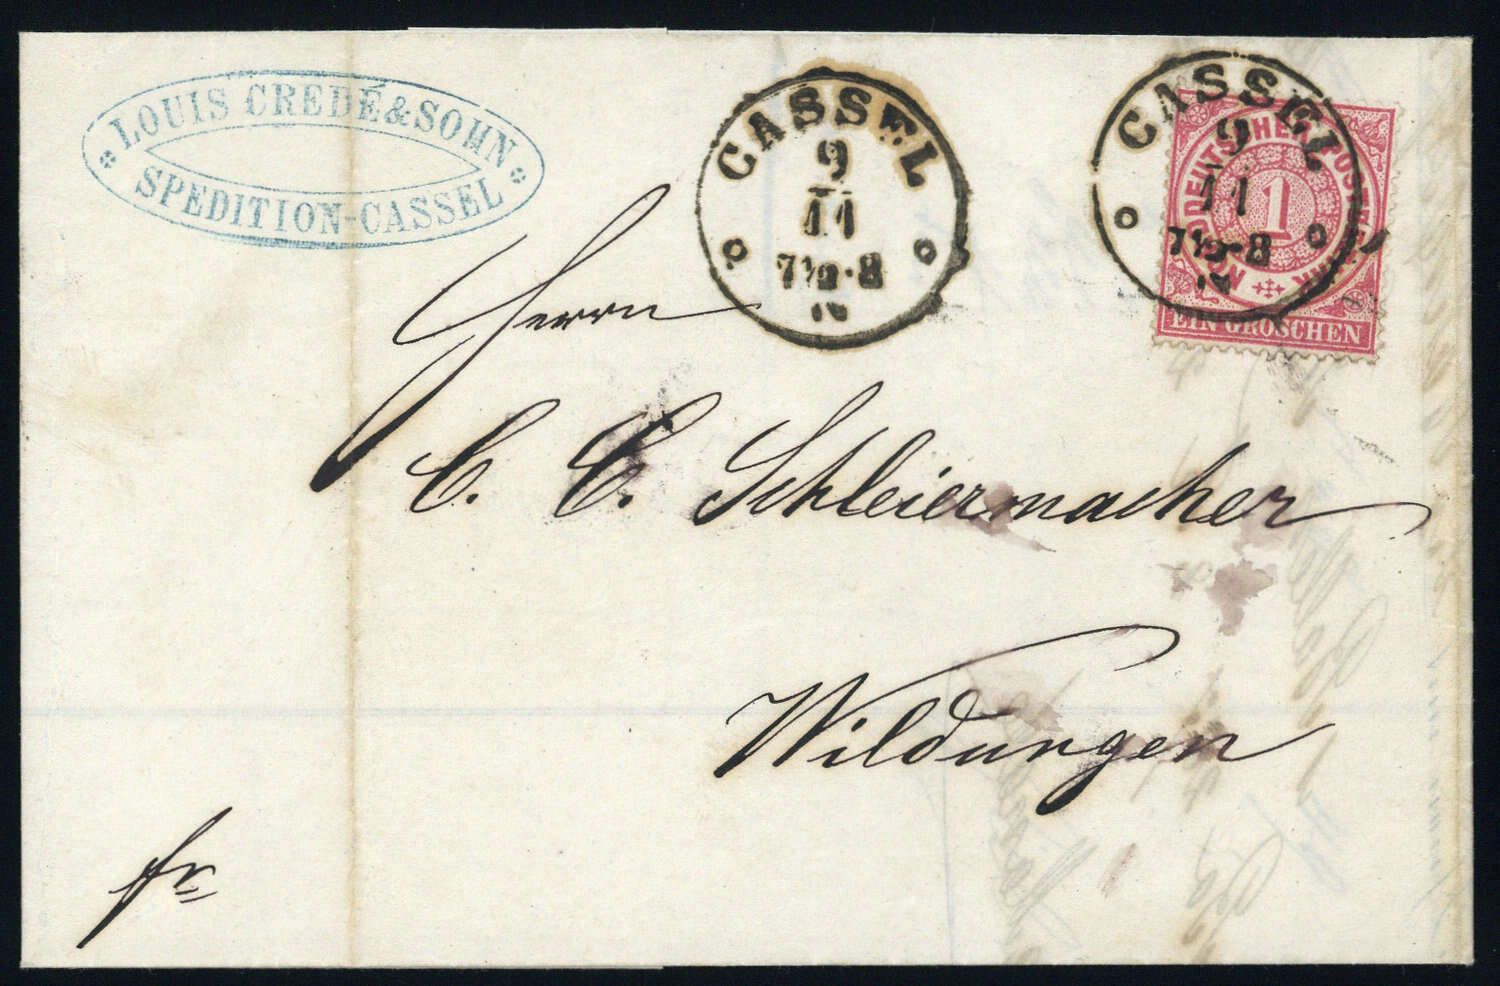 LOUIS CREDÉ & SOHN
SPEDITION-CASSEL
CASSEL
9
11
7½-8
N
CASSEL
9
11
7½-8
N
NORDDEUTSCHER POSTBEZIRK
1
EIN GROSCHEN
Herrn
C. C. Schleiermacher
Wildungen
fr